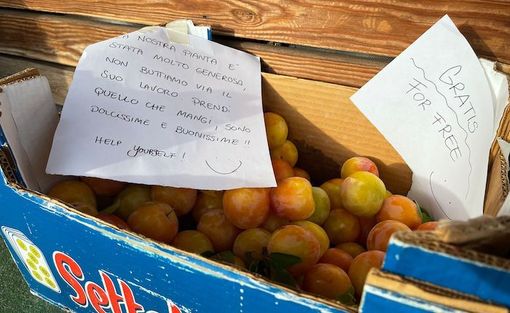 NOSTRA PIANTA E'
STATA MOLTO GENEROSA,
NON BUTTIAMO VIA IL
SUO LAVORO PREND.
QUELLO CHE MANGI, SONO
DOLCISSIME E BUONISSIME !!
HELP YOURSELF !
GRATIS
FOR FREE